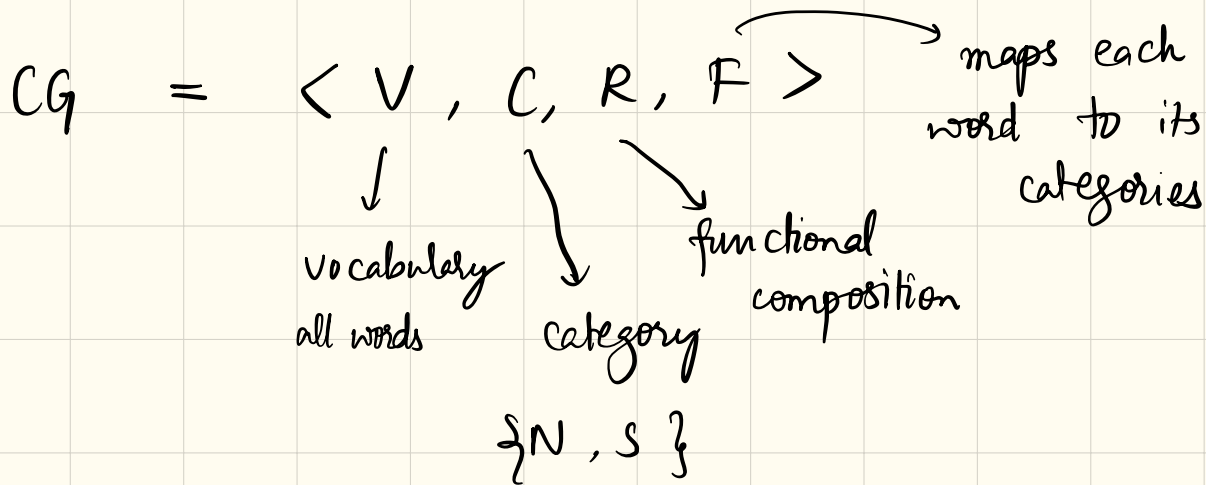 CG = < V , C, R, F >
maps each
word to its
categories
vocabulary
all words
category
{N , S }
functional
composition